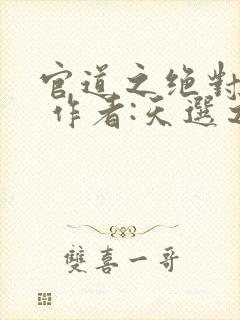 官道之绝對
作者:天選之
雙喜一哥